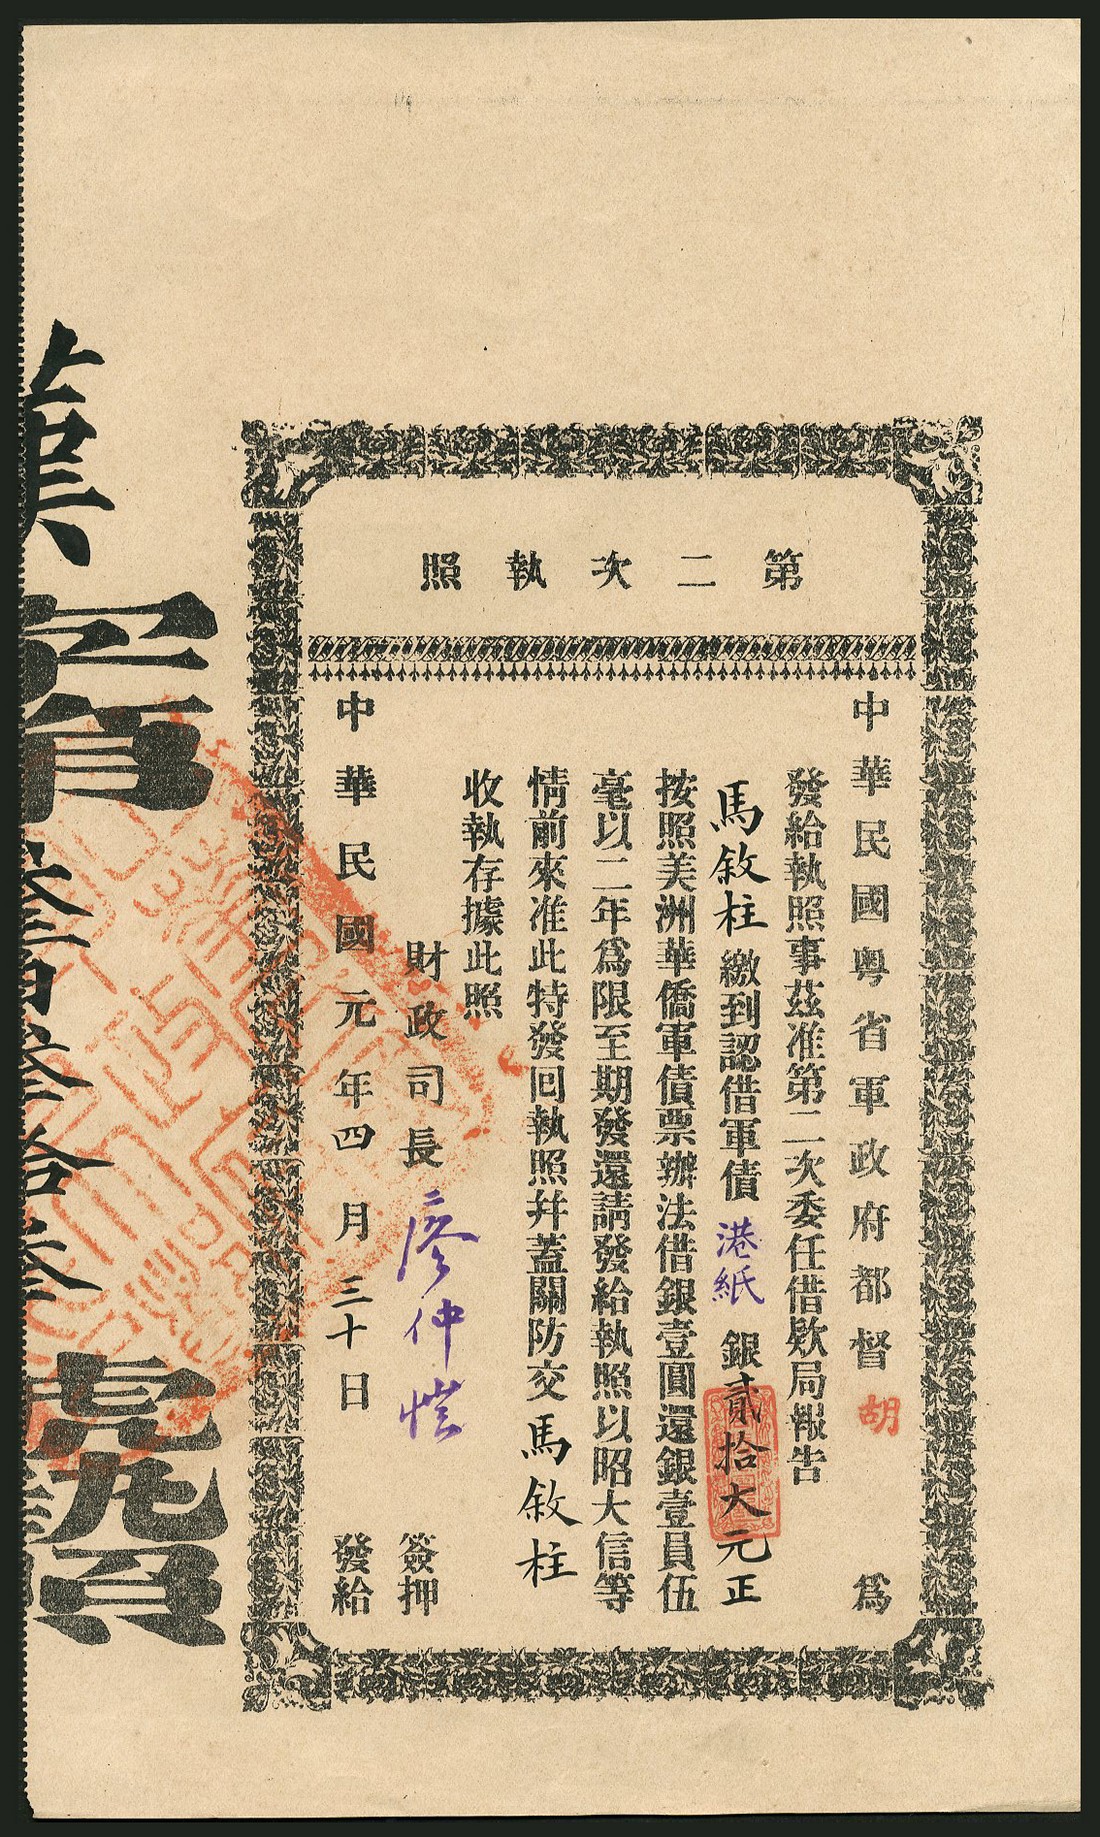 第二次執照
中華民國粵省軍政府都督胡 為
發給執照事茲准第二次委任借欵局報告
馬敘柱繳到認借軍債港紙銀貳拾大元正
按照美洲華僑軍債票辦法借銀壹圓還銀壹員伍
毫以二年為限至期發還請發給執照以昭大信等
情前來准此特發回執照并蓋關防交馬敘柱
收執存據此照
財政司長廖仲愷 簽押
中華民國元年四月三十日 發給
字第叁百叁拾叁號